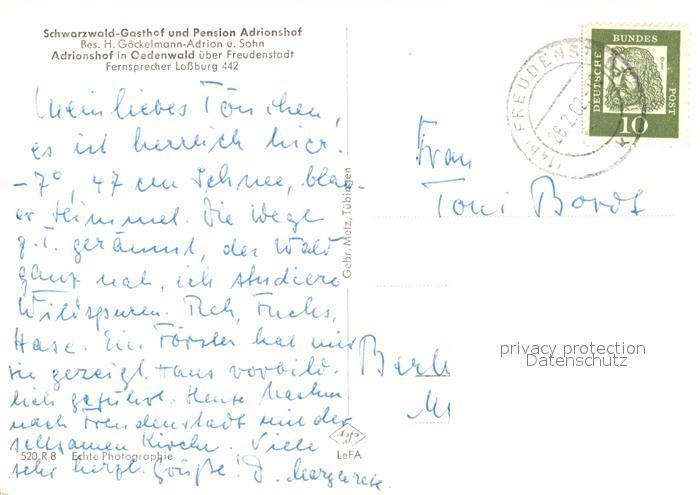 Schwarzwald-Gasthof und Pension Adrionshof
Bes. H. Göckelmann-Adrion u. Sohn
Adrionshof in Oedenwald über Freudenstadt
Fernsprecher Loßburg 442
Mein liebes Tönchen,
es ist herrlich hier.
-7°, 47 cm Schnee, blau-
er Himmel. Die Wege
z.T. geräumt, der Wald
ganz nah, ich studiere
Wildspuren. Reh, Fuchs,
Hase. Ein Förster hat mir
sie gezeigt. Haus vorbild-
lich geführt. Heute
nach Freudenstadt mit der
seltsamen Kirche. Viele
sehr herzl. Grüße! D. Margarete
520 R 8 Echte Photographie
Gebr. Metz, Tübingen
Agfa
LeFA
FREUDENS
DEUTSCHE BUNDES POST
10
Frau
Toni
Berl
privacy protection
Datenschutz